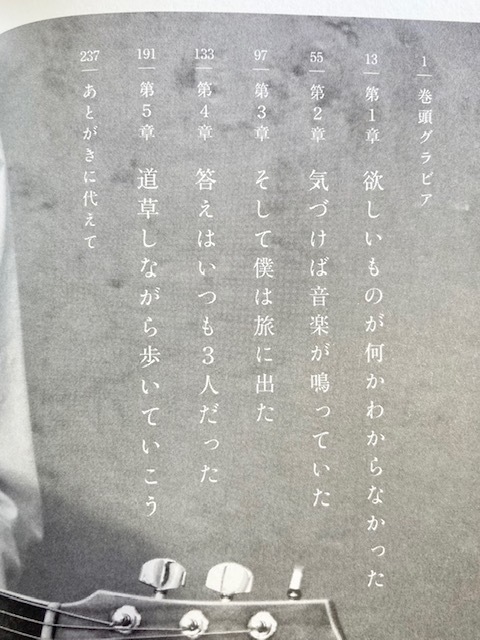 1 巻頭グラビア
13 第1章 欲しいものが何かわからなかった
55 第2章 気づけば音楽が鳴っていた
97 第3章 そして僕は旅に出た
133 第4章 答えはいつも3人だった
191 第5章 道草しながら歩いていこう
237 あとがきに代えて